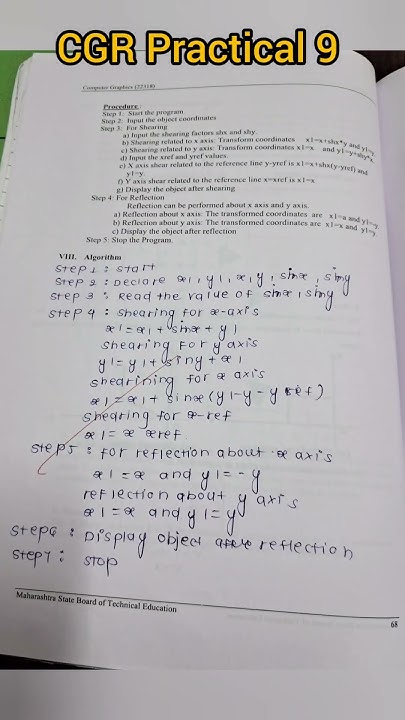 CGR Practical 9
Computer Graphics (22318)
Procedure
Step 1: Start the program.
Step 2: Input the object coordinates
Step 3: For Shearing
a) Input the shearing factors shx and shy.
b) Shearing related to x axis: Transform coordinates x1=x+shx*y and y1=y.
c) Shearing related to y axis: Transform coordinates x1=x and y1=y+shy*x.
d) Input the xref and yref values.
e) X axis shear related to the reference line y-yref is x1=x+shx(y-yref) and
y1=y.
f) Y axis shear related to the reference line x=xref is x1=x
g) Display the object after shearing
Step 4: For Reflection
Reflection can be performed about x axis and y axis.
a) Reflection about x axis: The transformed coordinates are x1=a and y1=-y.
b) Reflection about y axis: The transformed coordinates are x1=x and y1=y.
c) Display the object after reflection
Step 5: Stop the Program.
VIII. Algorithm
Step 1 : start
Step 2 : Declare x1, y1, x, y, sinx, siny
Step 3 : Read the value of sinx, siny
Step 4 : shearing for x-axis
x1 = x1 + sinx + y1
shearing for y axis
y1 = y1 + siny + x1
shearining for x axis
x1 = x1 + sinx (y1-y-y ref)
shearing for x-ref
x1 = x xref
Step 5 : for reflection about x axis
x1 = x and y1 = -y
reflection about y axis
x1 = x and y1 = y
Step6 : Display object reflection
Step7 : stop
Maharashtra State Board of Technical Education
68